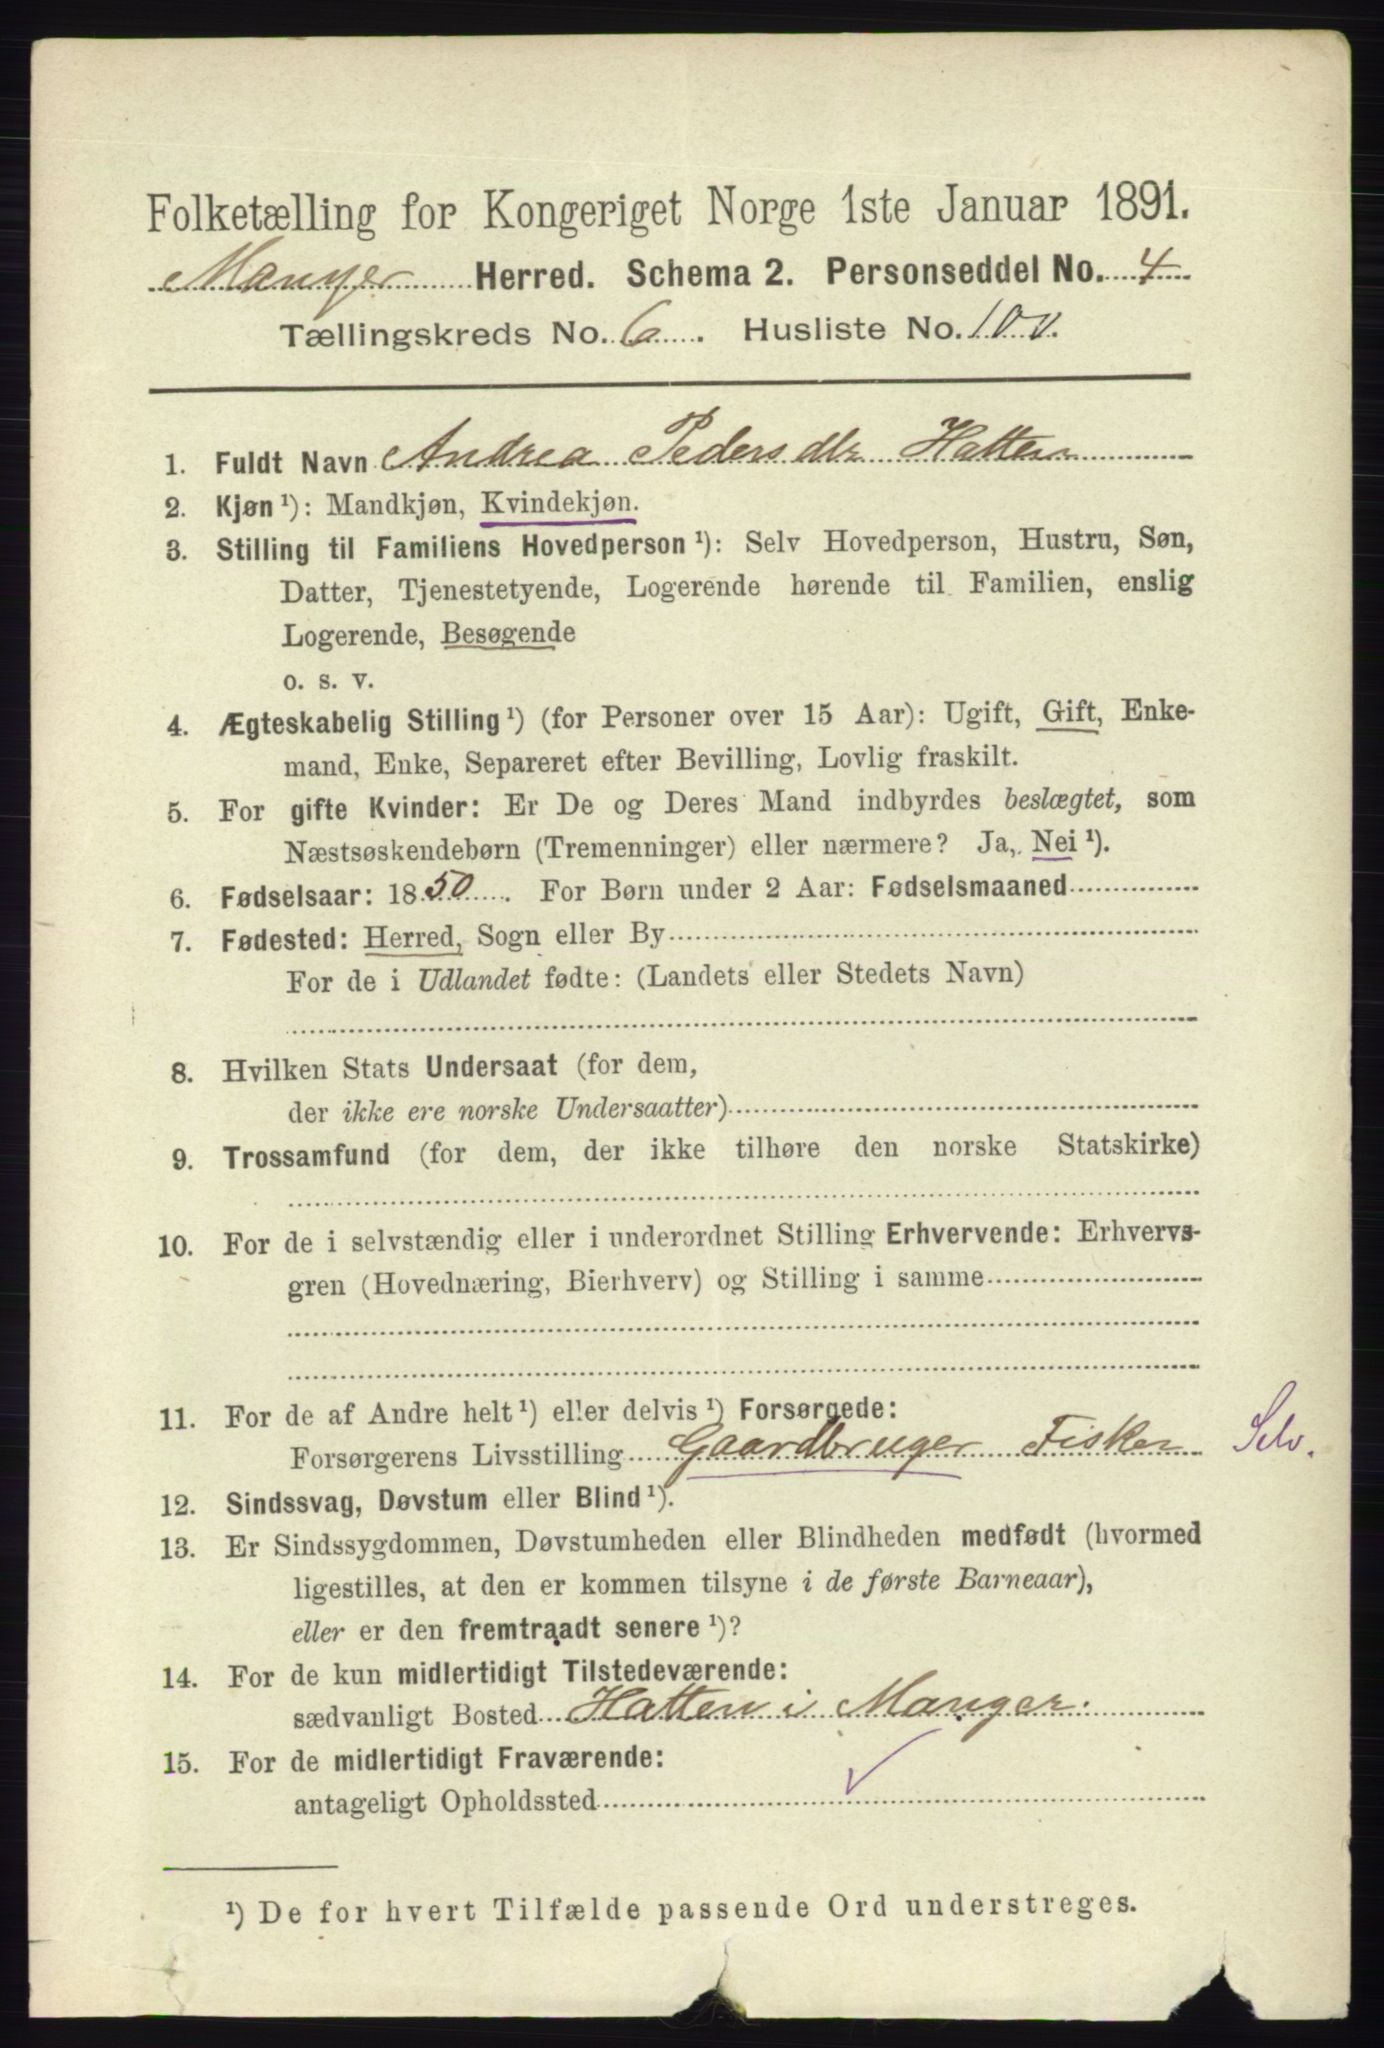 Folketælling for Kongeriget Norge 1ste Januar 1891.
Manger Herred. Schema 2. Personseddel No. 4
Tællingskreds No. 6. Husliste No. 100.
1. Fuldt Navn Andrea Pedersdtr Hatten
2. Kjøn ¹): Mandkjøn, Kvindekjøn.
3. Stilling til Familiens Hovedperson ¹): Selv Hovedperson, Hustru, Søn,
Datter, Tjenestetyende, Logerende hørende til Familien, enslig
Logerende, Besøgende
o. s. v.
4. Ægteskabelig Stilling ¹) (for Personer over 15 Aar): Ugift, Gift, Enke-
mand, Enke, Separeret efter Bevilling, Lovlig fraskilt.
5. For gifte Kvinder: Er De og Deres Mand indbyrdes beslægtet, som
Næstsøskendebørn (Tremenninger) eller nærmere? Ja, Nei ¹).
6. Fødselsaar: 1850. For Børn under 2 Aar: Fødselsmaaned
7. Fødested: Herred, Sogn eller By
For de i Udlandet fødte: (Landets eller Stedets Navn)
8. Hvilken Stats Undersaat (for dem,
der ikke ere norske Undersaatter)
9. Trossamfund (for dem, der ikke tilhøre den norske Statskirke)
10. For de i selvstændig eller i underordnet Stilling Erhvervende: Erhvervs-
gren (Hovednæring, Bierhverv) og Stilling i samme
11. For de af Andre helt ¹) eller delvis ¹) Forsørgede:
Forsørgerens Livsstilling Gaardbruger Fisker Selv.
12. Sindssvag, Døvstum eller Blind ¹).
13. Er Sindssygdommen, Døvstumheden eller Blindheden medfødt (hvormed
ligestilles, at den er kommen tilsyne i de første Barneaar),
eller er den fremtraadt senere ¹)?
14. For de kun midlertidigt Tilstedeværende:
sædvanligt Bosted Hatten i Manger.
15. For de midlertidigt Fraværende:
antageligt Opholdssted
¹) De for hvert Tilfælde passende Ord understreges.